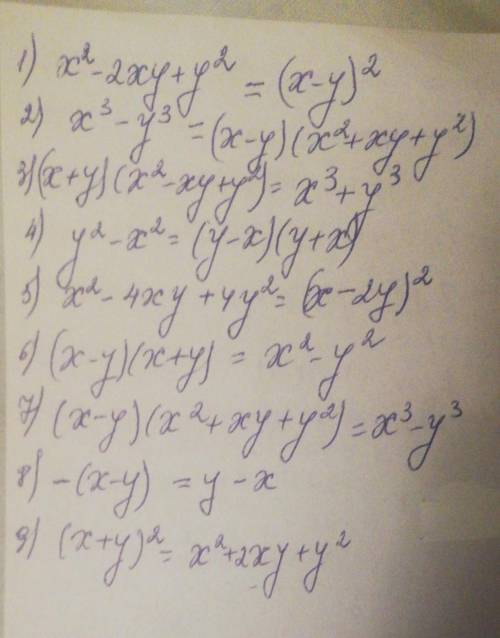 1) x² - 2xy + y² = (x-y)²
2) x³ - y³ = (x-y)(x²+xy+y²)
3) (x+y)(x²-xy+y²) = x³+y³
4) y² - x² = (y-x)(y+x)
5) x² - 4xy + 4y² = (x-2y)²
6) (x-y)(x+y) = x² - y²
7) (x-y)(x²+xy+y²) = x³-y³
8) -(x-y) = y - x
9) (x+y)² = x²+2xy+y²